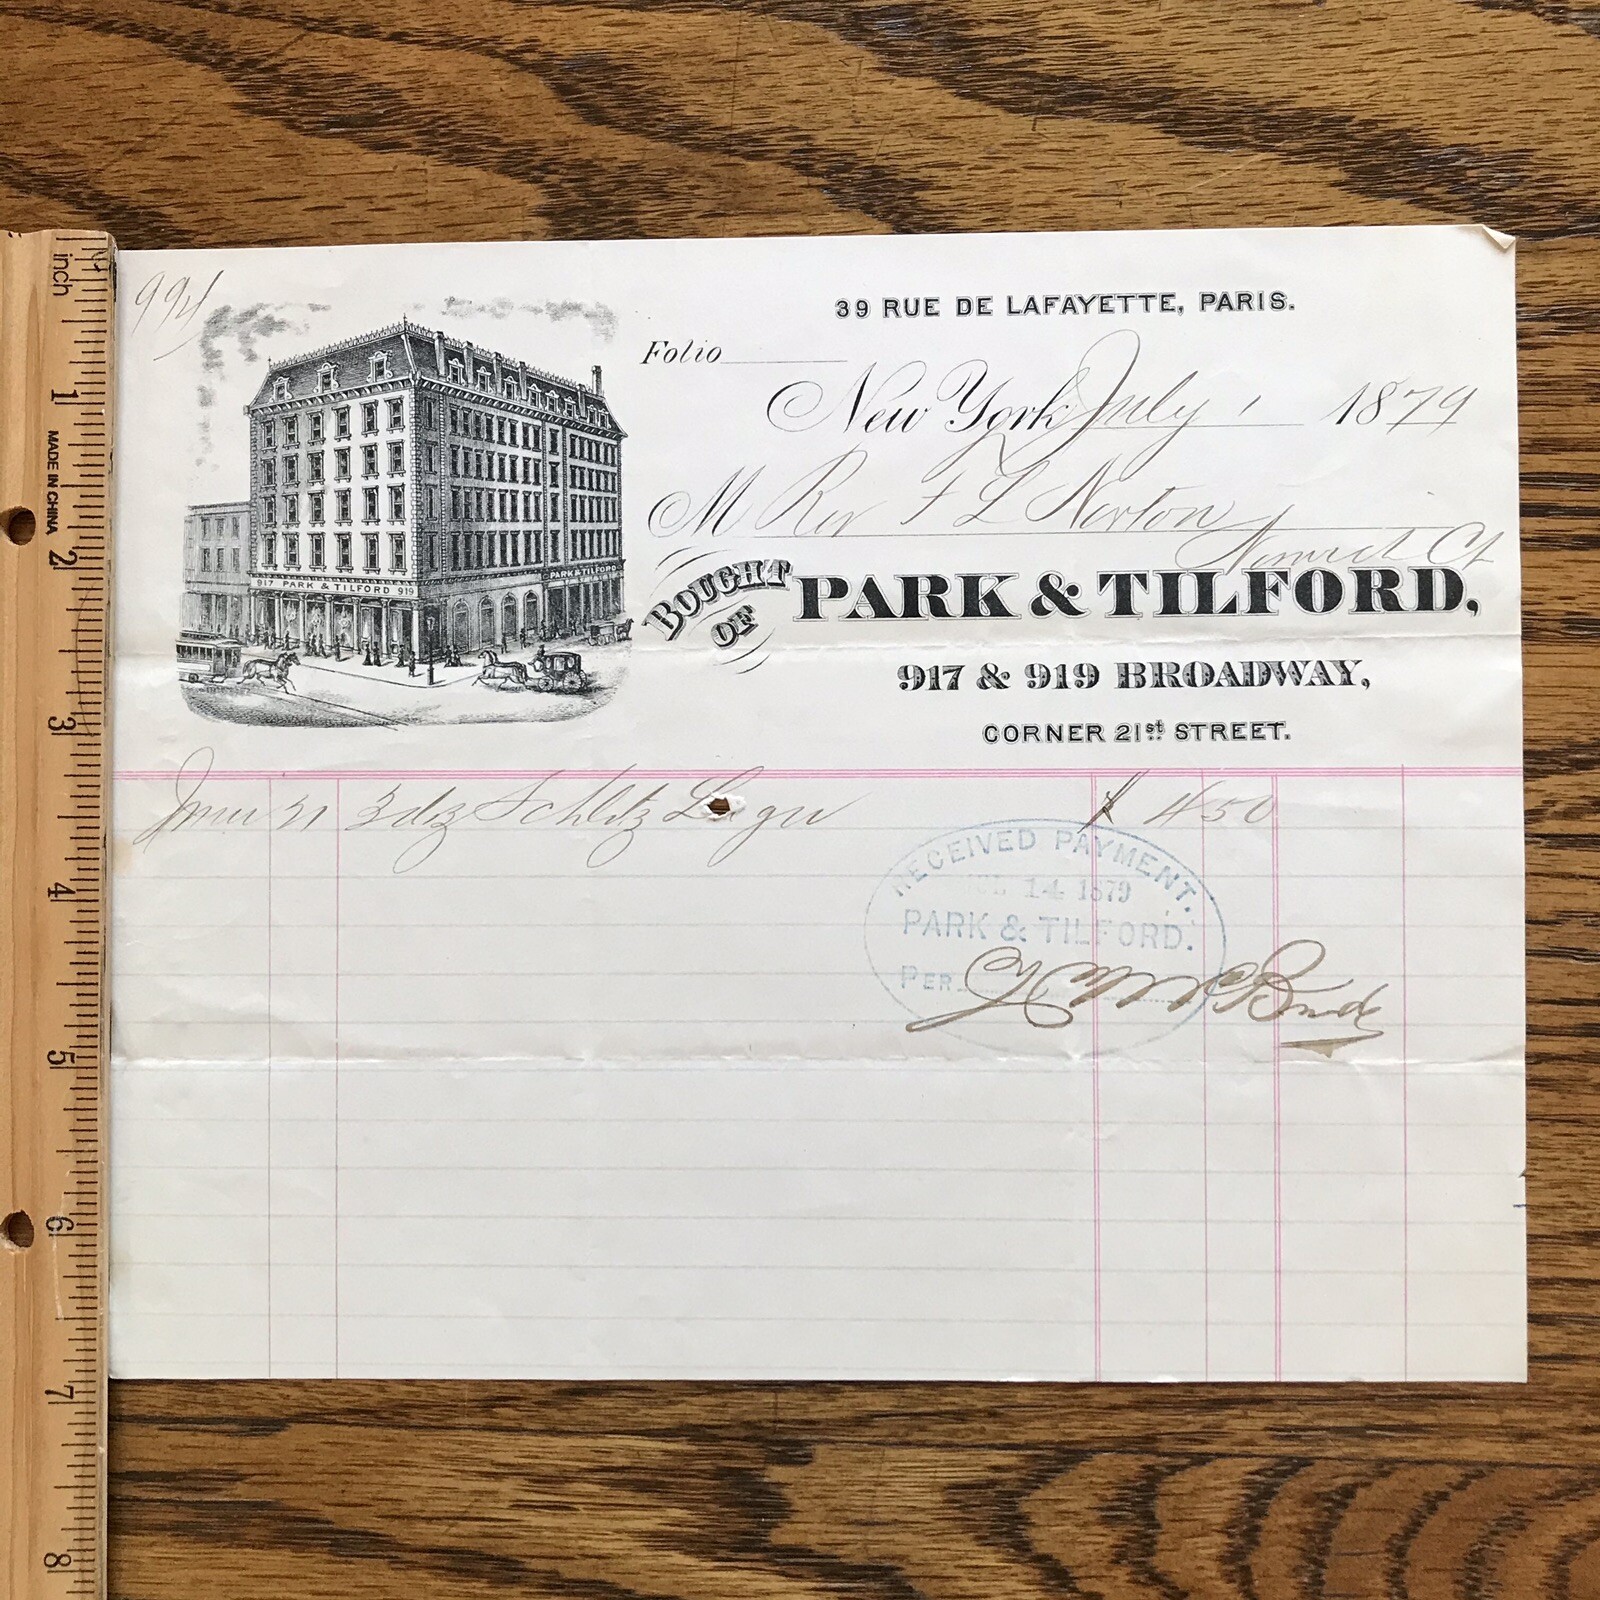 inch
1
MADE IN CHINA
2
3
4
5
6
7
8
39 RUE DE LAFAYETTE, PARIS.
Folio
New York July 1 1879
M Rev F L Norton
Ct
BOUGHT OF PARK & TILFORD,
917 & 919 BROADWAY,
CORNER 21st STREET.
917 PARK & TILFORD 919
PARK & TILFORD
June 21 3 dz Schlitz Lager $ 4 50
RECEIVED PAYMENT.
JUL 14 1879
PARK & TILFORD.
PER